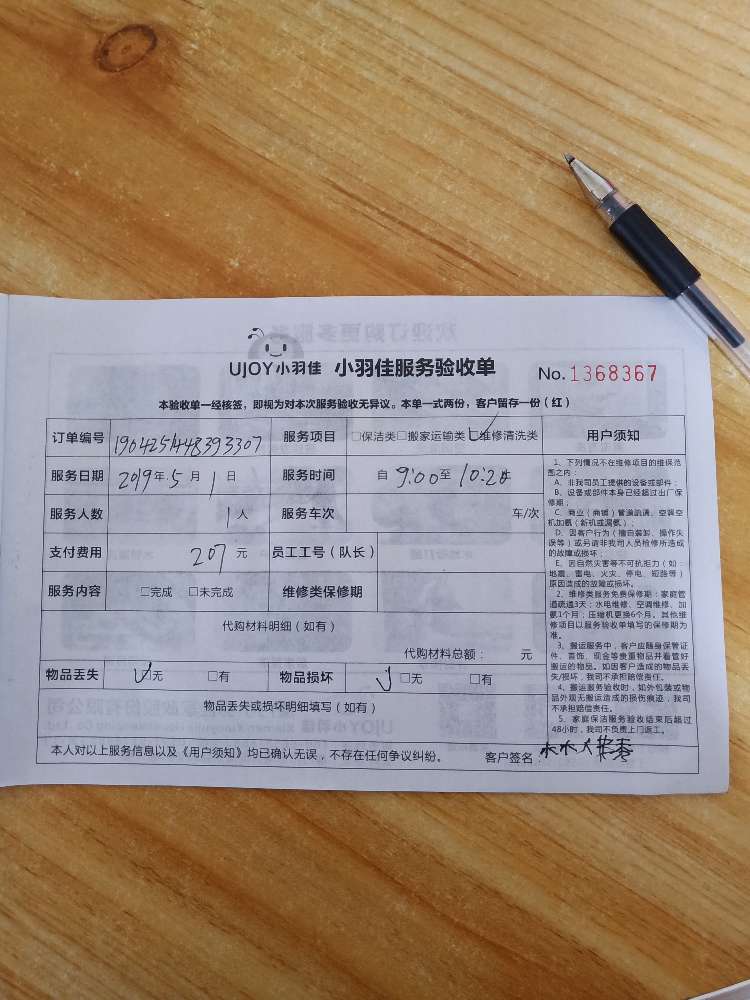 UJOY小羽佳 小羽佳服务验收单 No.1368367
本验收单一经核签，即视为对本次服务验收无异议。本单一式两份，客户留存一份（红）
订单编号 190425144839 3307 服务项目 □保洁类□搬家运输类□维修清洗类 用户须知
服务日期 2019年5月1日 服务时间 自9:00至10:20
服务人数 1人 服务车次 车/次
支付费用 207元 员工工号（队长）
服务内容 □完成 □未完成 维修类保修期
代购材料明细（如有）
代购材料总额： 元
物品丢失 □无 □有 物品损坏 □无 □有
物品丢失或损坏明细填写（如有）
1、下列情况不在维修项目的维保范
围之内：
A、非我司员工提供的设备或部件；
B、设备或部件本身已经超过出厂保
修期；
C、商业（商铺）管道疏通、空调空
机加氨（新机或漏氨）；
D、因客户行为（擅自装卸、操作失
误等）或另请非我司人员检修所造成
的故障或损坏；
E、因自然灾害等不可抗拒力（如：
地震、雷电、火灾、停电、短路等）
原因造成的故障或损坏。
2、维修类服务免费保修期：家庭管
道疏通3天；水电维修、空调维修、加
氨1个月；压缩机更换6个月。其他维
修项目以服务验收单填写的保修期为
准。
3、搬运服务中，客户应随身保管证
件、首饰、现金等贵重物品并看管好
搬运的物品。如因客户造成的物品丢
失/损坏，我司不承担赔偿责任。
4、搬运服务验收时，如外包装或物
品外观无搬运造成的损伤痕迹，我司
不承担赔偿责任。
5、家庭保洁服务验收结束后超过
48小时，我司不负责上门返工。
本人对以上服务信息以及《用户须知》均已确认无误，不存在任何争议纠纷。 客户签名：